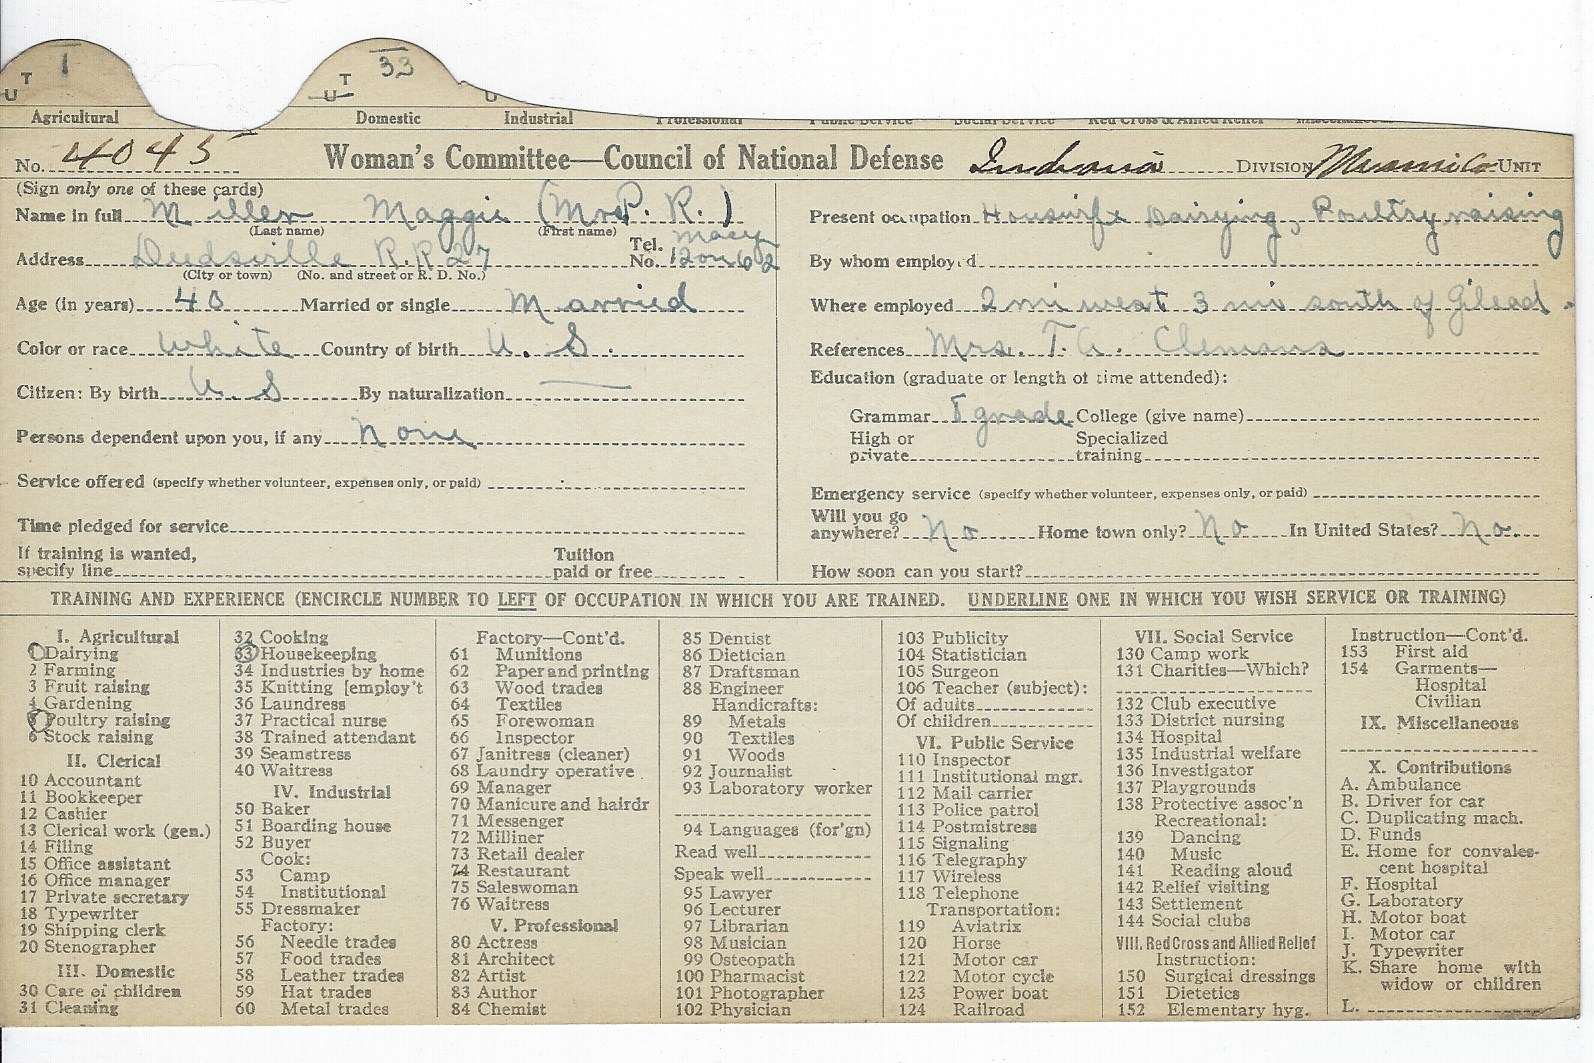 T 1
U
T 33
U
U
Agricultural Domestic Industrial Professional Public Service Social Service Red Cross & Allied Relief
No. 4045 Woman's Committee—Council of National Defense Indiana DIVISION Miami Co. UNIT
(Sign only one of these cards)
Name in full Miller Maggie (Mrs P. R.)
(Last name) (First name)
Address Deedsville R.R 27 Tel. No. Macy 12 on 62
(City or town) (No. and street or R. D. No.)
Age (in years) 40 Married or single Married
Color or race White Country of birth U. S.
Citizen: By birth U. S By naturalization —
Persons dependent upon you, if any None
Service offered (specify whether volunteer, expenses only, or paid)
Time pledged for service
If training is wanted,
specify line
Tuition
paid or free
Present occupation Houswife Dairying, Poultry raising
By whom employed
Where employed 2 mi west 3 mi south of Gilead.
References Mrs. T. A. Clemans
Education (graduate or length of time attended):
Grammar grade College (give name)
High or
private
Specialized
training
Emergency service (specify whether volunteer, expenses only, or paid)
Will you go
anywhere? No Home town only? No In United States? No
How soon can you start?
TRAINING AND EXPERIENCE (ENCIRCLE NUMBER TO LEFT OF OCCUPATION IN WHICH YOU ARE TRAINED. UNDERLINE ONE IN WHICH YOU WISH SERVICE OR TRAINING)
I. Agricultural
1 Dairying
2 Farming
3 Fruit raising
4 Gardening
5 Poultry raising
6 Stock raising
II. Clerical
10 Accountant
11 Bookkeeper
12 Cashier
13 Clerical work (gen.)
14 Filing
15 Office assistant
16 Office manager
17 Private secretary
18 Typewriter
19 Shipping clerk
20 Stenographer
III. Domestic
30 Care of children
31 Cleaning
32 Cooking
33 Housekeeping
34 Industries by home
35 Knitting [employ't
36 Laundress
37 Practical nurse
38 Trained attendant
39 Seamstress
40 Waitress
IV. Industrial
50 Baker
51 Boarding house
52 Buyer
Cook:
53 Camp
54 Institutional
55 Dressmaker
Factory:
56 Needle trades
57 Food trades
58 Leather trades
59 Hat trades
60 Metal trades
Factory—Cont'd.
61 Munitions
62 Paper and printing
63 Wood trades
64 Textiles
65 Forewoman
66 Inspector
67 Janitress (cleaner)
68 Laundry operative
69 Manager
70 Manicure and hairdr
71 Messenger
72 Milliner
73 Retail dealer
74 Restaurant
75 Saleswoman
76 Waitress
V. Professional
80 Actress
81 Architect
82 Artist
83 Author
84 Chemist
85 Dentist
86 Dietician
87 Draftsman
88 Engineer
Handicrafts:
89 Metals
90 Textiles
91 Woods
92 Journalist
93 Laboratory worker
94 Languages (for'gn)
Read well
Speak well
95 Lawyer
96 Lecturer
97 Librarian
98 Musician
99 Osteopath
100 Pharmacist
101 Photographer
102 Physician
103 Publicity
104 Statistician
105 Surgeon
106 Teacher (subject):
Of adults
Of children
VI. Public Service
110 Inspector
111 Institutional mgr.
112 Mail carrier
113 Police patrol
114 Postmistress
115 Signaling
116 Telegraphy
117 Wireless
118 Telephone
Transportation:
119 Aviatrix
120 Horse
121 Motor car
122 Motor cycle
123 Power boat
124 Railroad
VII. Social Service
130 Camp work
131 Charities—Which?
132 Club executive
133 District nursing
134 Hospital
135 Industrial welfare
136 Investigator
137 Playgrounds
138 Protective assoc'n
Recreational:
139 Dancing
140 Music
141 Reading aloud
142 Relief visiting
143 Settlement
144 Social clubs
VIII. Red Cross and Allied Relief
Instruction:
150 Surgical dressings
151 Dietetics
152 Elementary hyg.
Instruction—Cont'd.
153 First aid
154 Garments—
Hospital
Civilian
IX. Miscellaneous
X. Contributions
A. Ambulance
B. Driver for car
C. Duplicating mach.
D. Funds
E. Home for convales-
cent hospital
F. Hospital
G. Laboratory
H. Motor boat
I. Motor car
J. Typewriter
K. Share home with
widow or children
L.